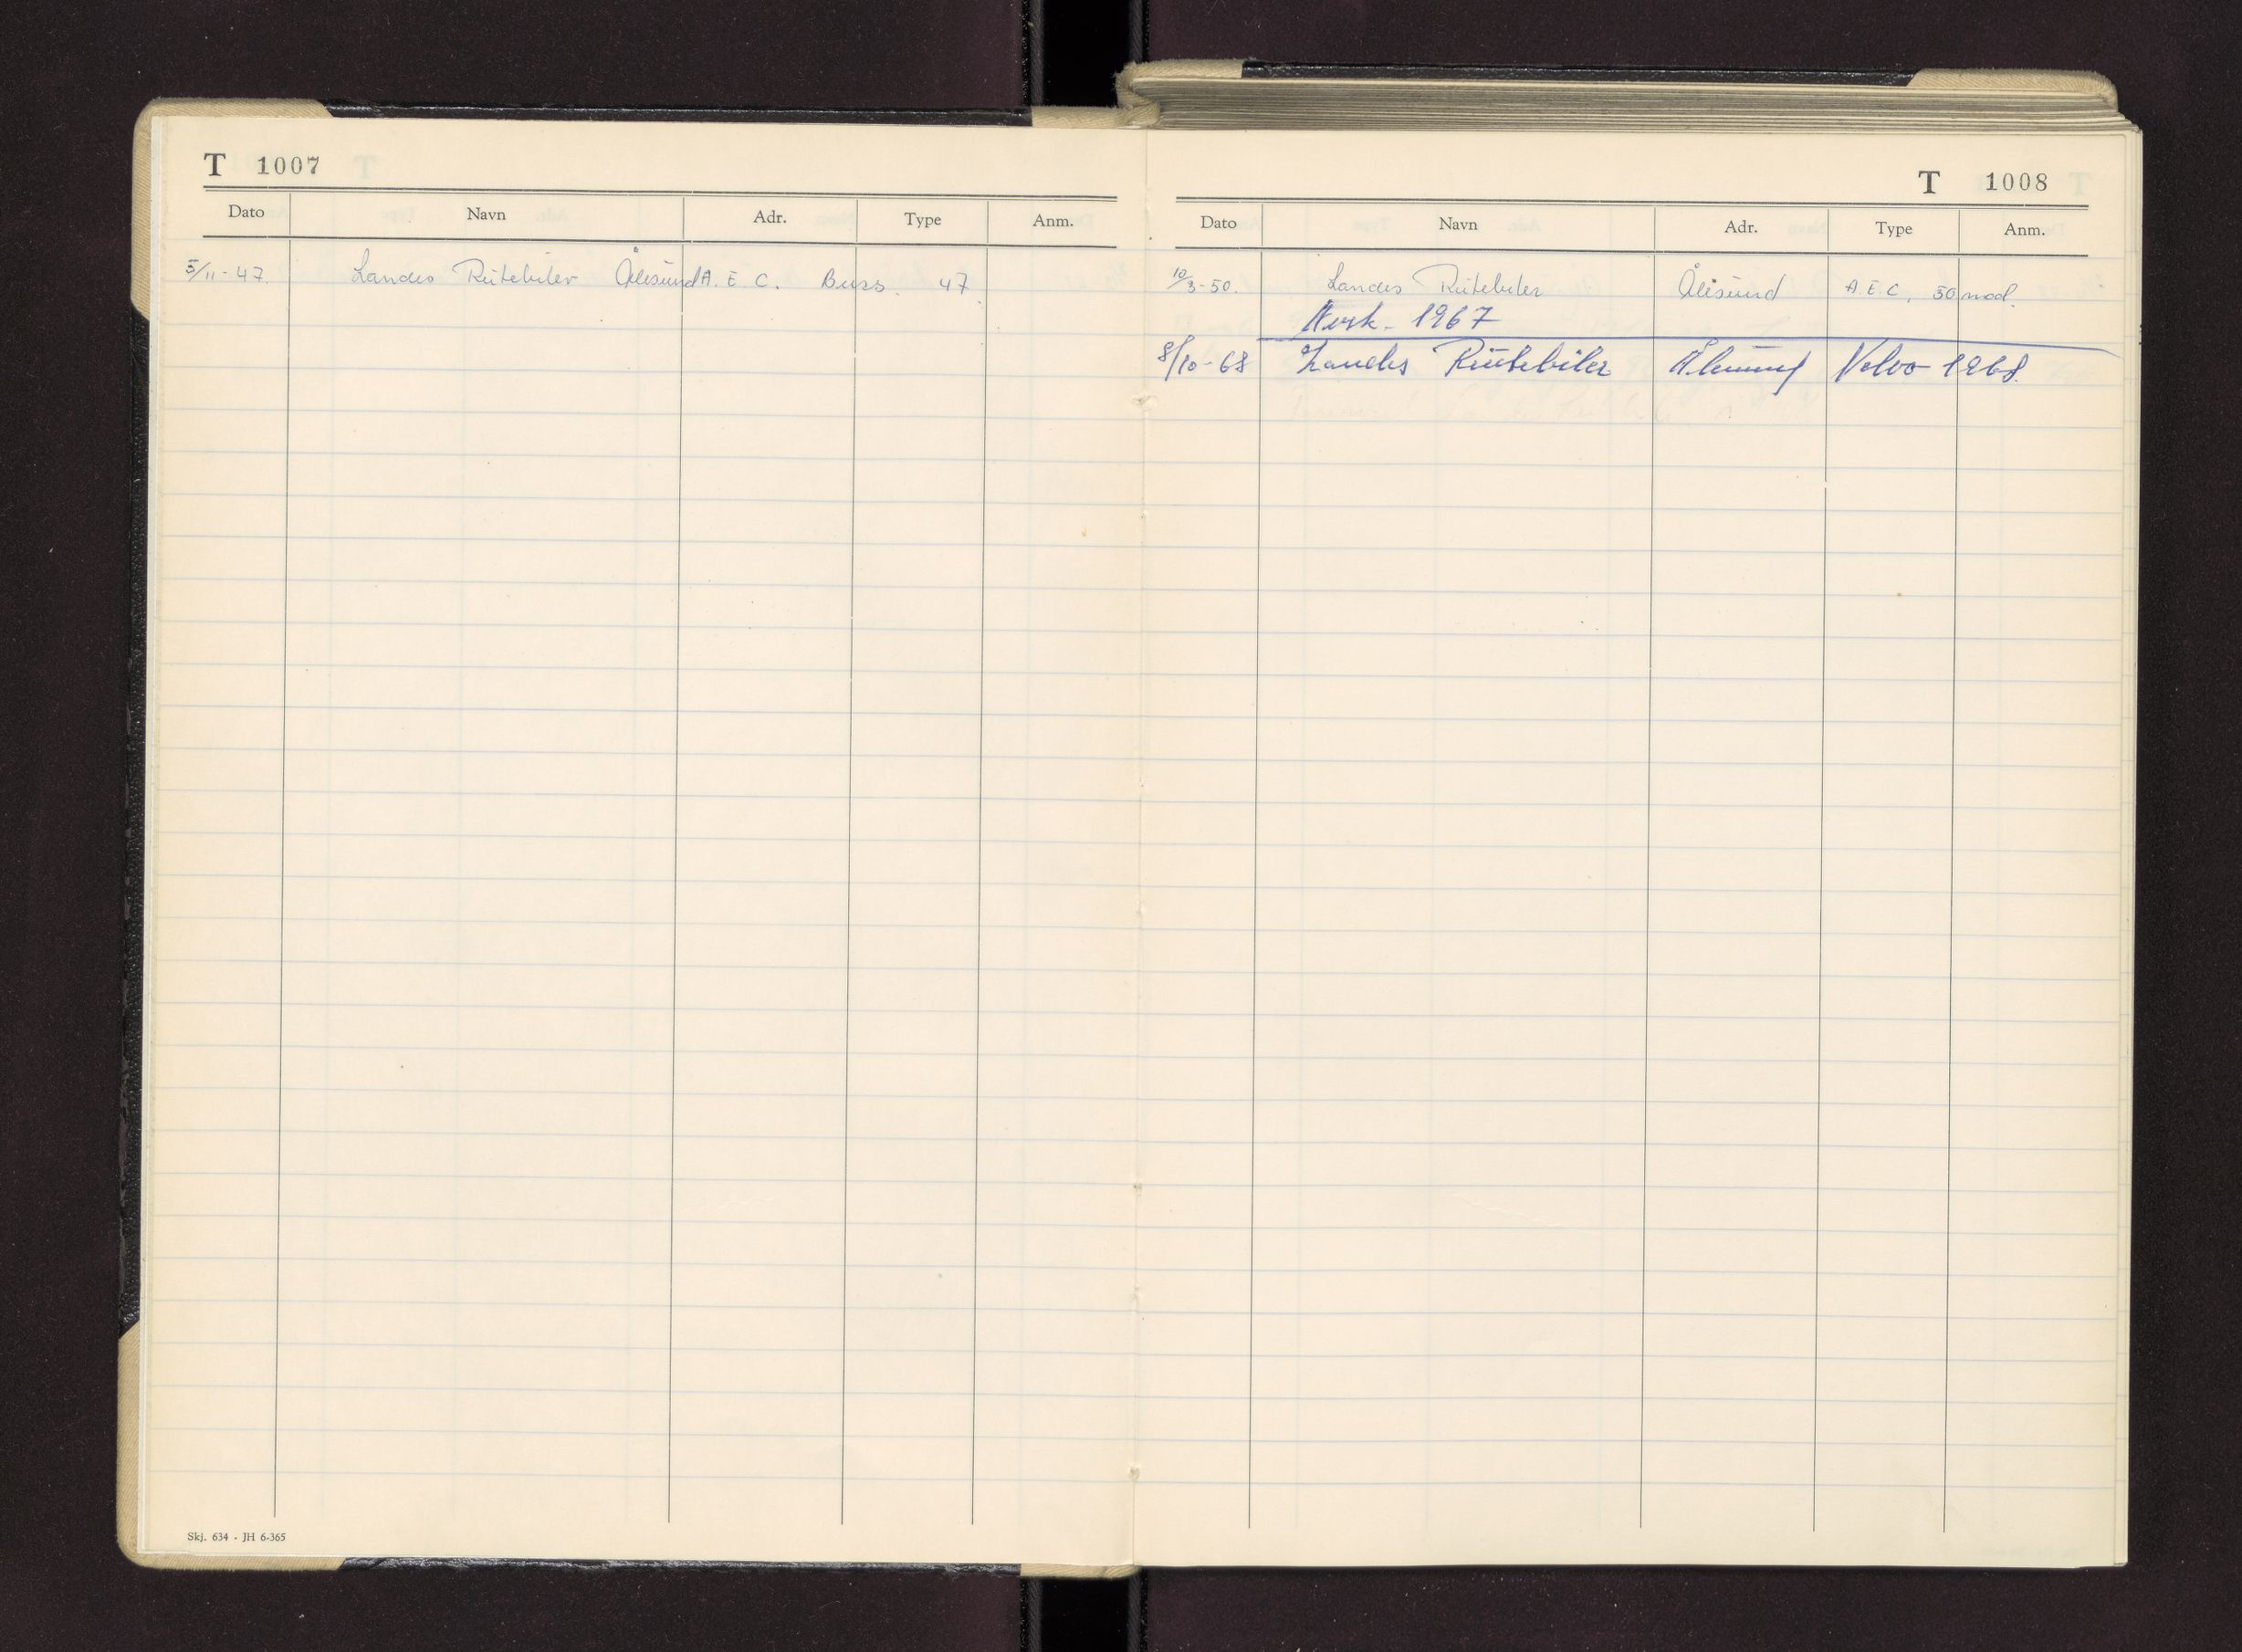 T 1007
Dato Navn Adr. Type Anm.
5/11-47. Landes Rutebiler Ålesund A.E.C. Buss. 47.
Skj. 634 - JH 6-365
T 1008
Dato Navn Adr. Type Anm.
10/3-50. Landes Rutebiler Ålesund A.E.C. 50 mod.
1967
8/10-68 Landes Rutebiler Ålesund Volvo 1968.